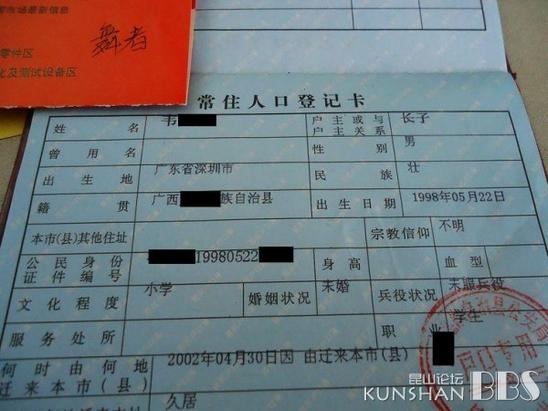 市场最新信息
零件区
化及测试设备区
舞者
常住人口登记卡
姓名 韦 户主或与户主关系 长子
曾用名 性别 男
出生地 广东省深圳市 民族 壮
籍贯 广西 族自治县 出生日期 1998年05月22日
本市(县)其他住址 宗教信仰 不明
公民身份证件编号 19980522 身高 血型
文化程度 小学 婚姻状况 未婚 兵役状况 未服兵役
服务处所 职业 学生
何时由何地迁来本市(县) 2002年04月30日因 由迁来本市(县)
久居
昆山论坛
KUNSHAN BBS